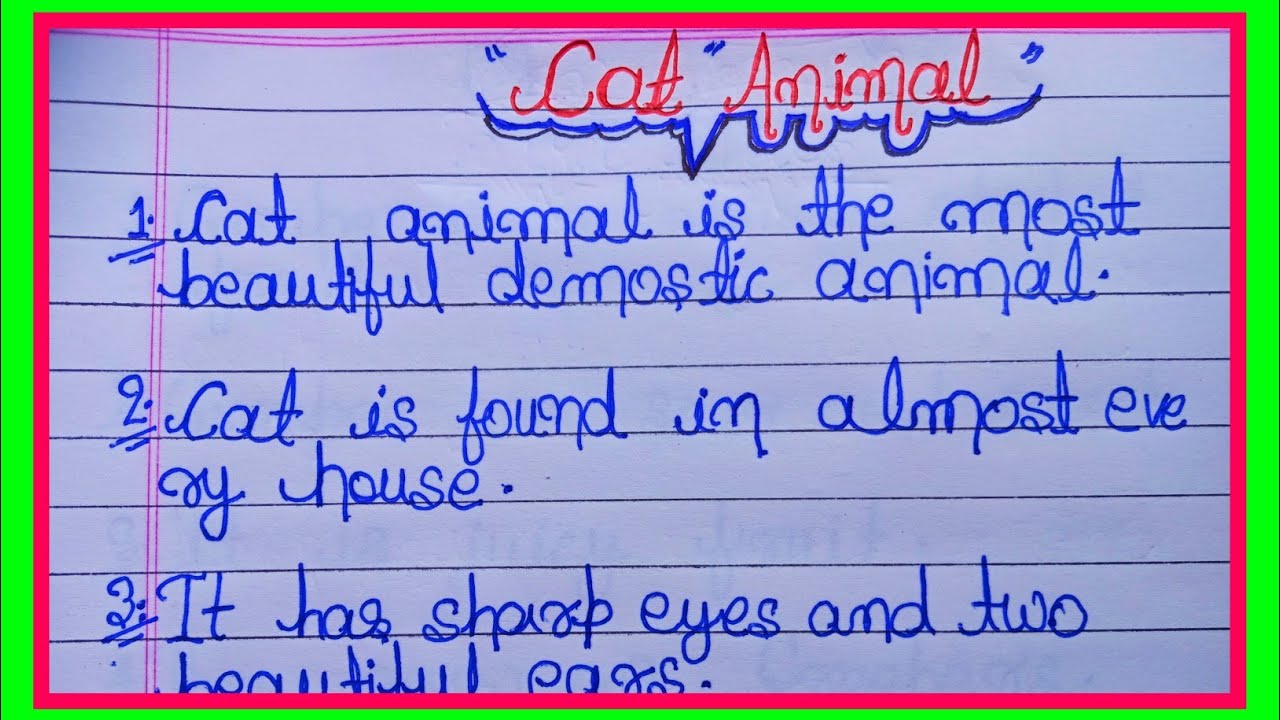 "Cat" Animal"
1. Cat animal is the most
beautiful demostic animal.
2. Cat is found in almost eve
ry house.
3. It has sharp eyes and two
beautiful ears.